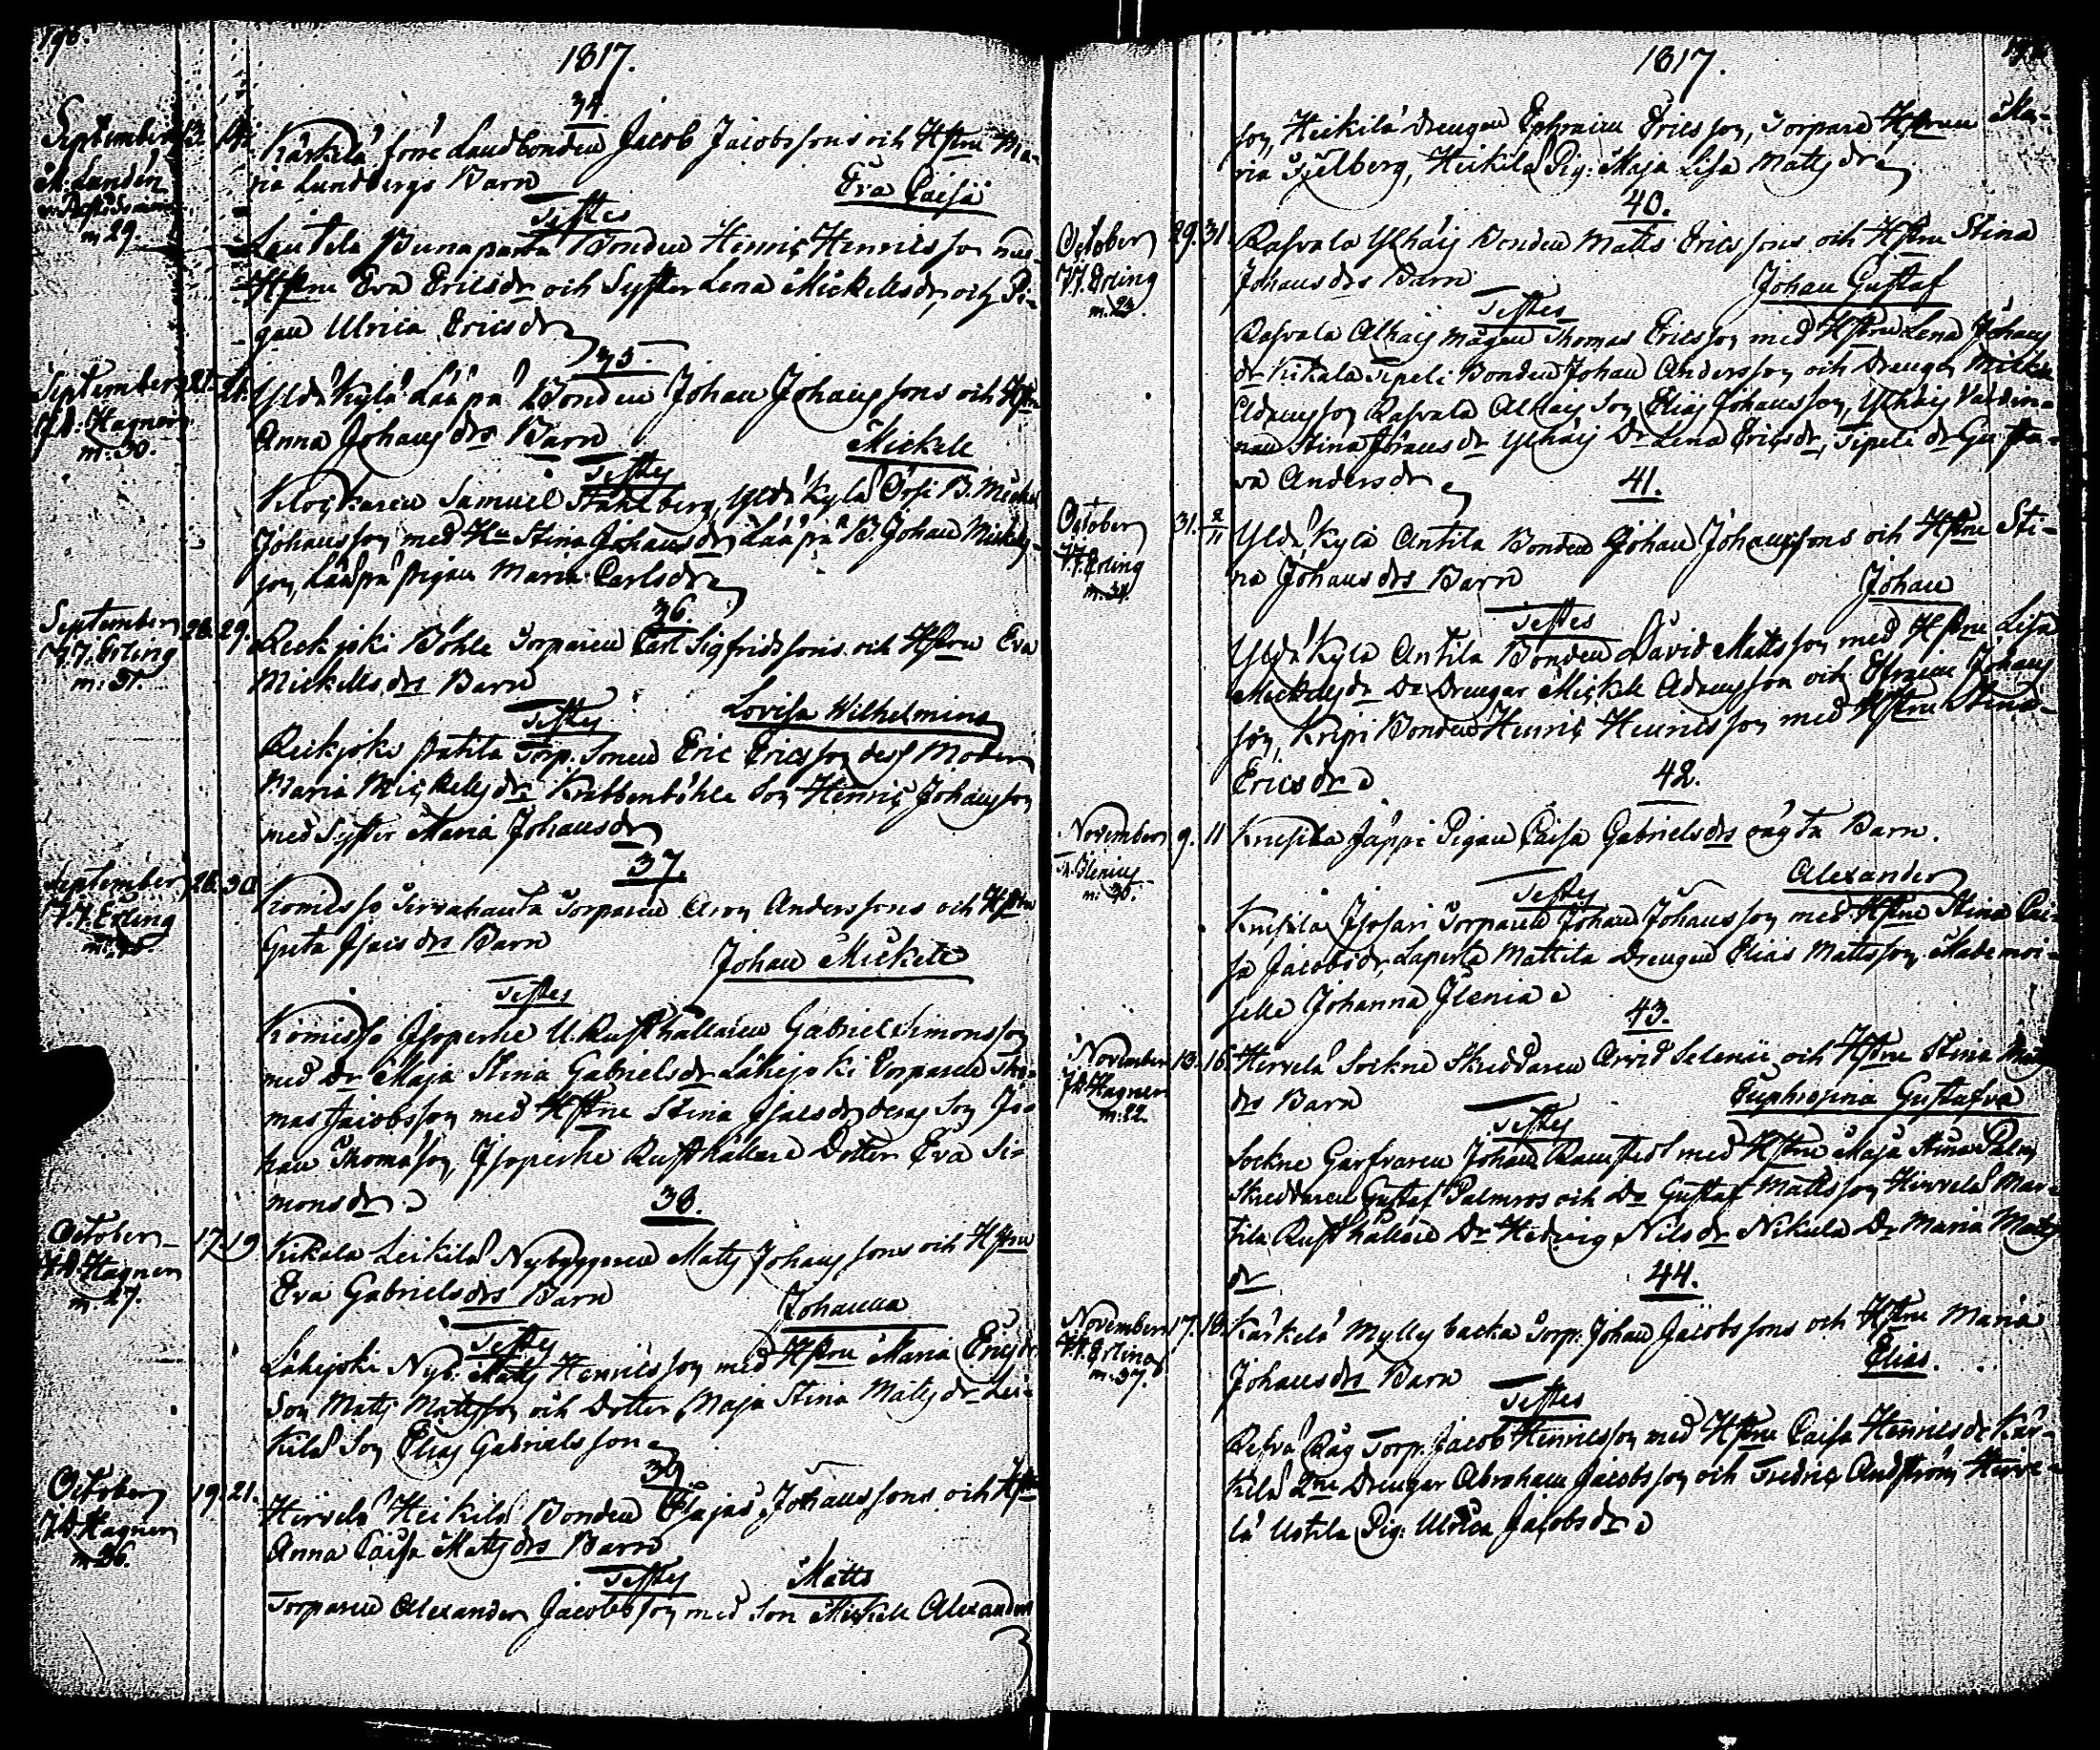 1817.
34.
September 13. 14. Kärkelä förre Landbonden Jacob Jacobssons och Hstru Ma-
ria Lundbergs Barn Eva Caisa
Testes
m. 29.
Lautela Bunaparta Bonden Henric Henricsson med
Hstru Eva Ericsdr och Syster Lena Mickelsdr, och Pi-
gan Ulrica Ericsdr
35.
September 21. 21. Yldäkylä Lääpä Bonden Johan Johanssons och Hstru
J. A. Hagner
Anna Johansdrs Barn Mickell
m. 30.
Testes
Klockaren Samuel Ståhlberg, Yldäkylä Orsi B. Mickel
Johansson med Hu Stina Johansdr Lääpä B. Johan Mickels-
son, Lääpä pigan Maria Carlsdr
36.
September 28. 29. Reckjoki Böhle Torparen Carl Sigfridssons och Hstru Eva
Erling
m. 31.
Mickellsdrs Barn Lovisa Wilhelmina
Testes
Reckjoki Torp. Sonen Eric Ericsson dess Moder
Maria Mickellsdr Krabbenböhle Son Henric Johansson
med Syster Maria Johansdr
37.
September 28. 30. Komisso Torparen Aron Anderssons och Hstru
Erling
Greta Isacsdrs Barn Johan Mickell
Testes
Komisso Isoperhe U. Rusthållaren Gabriel Simonsson
med Dr Maja Stina Gabrielsdr Lähejoki Torparen Tho-
mas Jacobsson med Hstru Stina Isacsdr deras Son Jo-
han Thomasson, Isoperhe Rusthållare Dotter Eva Si-
monsdr
38.
October 17. 19 Kikala Leikilä Nybyggaren Matts Johanssons och Hstru
J. A. Hagner
m. 27.
Eva Gabrielsdrs Barn Johanna
Testes
Lähejoki Nyb: Matts Henricsson med Hstru Maria Ericsdr
Son Matts Mattsson och Dotter Maja Stina Mattsdr Lei-
kilä Son Elias Gabrielsson
39.
October 19. 21. Hirvelä Heikilä Bonden Esajas Johanssons och Hstru
J. A. Hagner
m. 36.
Anna Caisa Mattsdrs Barn
Testes Matts
Torparen Alexander Jacobsson med Son Mickell Alexanders
1817.
son, Heikilä drengen Ephraim Ericsson, Torpare Hstrun Ma-
ria Sjelberg, Heikilä Pig: Maja Lisa Mattsdr
40.
October 29. 31. Rasvala Ylhäis Bonden Matts Ericssons och Hstru Stina
Erling
Johansdrs Barn Johan Gustaf
Testes
Rasvala Alhais mågen Thomas Ericsson med Hstru Lena Johans
dr Kikala Tipeli Bonden Johan Andersson och Drengen Mickel
Adamsson Rasvala Alhais Son Elias Johansson, Ylhäis Värdin-
nan Stina Johansdr Ylhäis Dr Lena Ericsdr, Tipeli dr Gusta-
va Andersdr
41.
October 31. 2/11 Yldäkylä Antila Bonden Johan Johanssons och Hstru Sti-
Erling
m. 34.
na Johansdrs Barn Johan
Testes
Yldäkylä Antila Bonden David Mattsson med Hstru Lisa
Mickelsdr Do Drengar Mickel Adamsson och Efraim Johans
son, Kripi Bonden Henric Henricsson med Hstru Stina
Ericsdr
42.
November 9. 11 Knesila Jäppi Pigan Caisa Gabrielsdrs oägta Barn.
m. 30.
Testes Alexander
Knesila Isosari Torparen Johan Johansson med Hstru Stina Cai-
sa Jacobsdr, Laperla Mattila Drengen Elias Mattsson, Mademoi-
selle Johanna Ilenia
43.
November 13. 16. Hirvelä Sockne Skreddaren Arvid Selenii och Hstru Stina Matts
J. A. Hagner
m. 22.
drs Barn Euphrosina Gustafva
Testes
Sockne Garfvaren Johan Ramstedt med Hstru Maja Stina Palm
Skreddaren Gustaf Palmros och Do Gustaf Mattsson, Hirvelä Mar-
tila Rusthållare Dr Hedvig Nilsdr Nikula Dr Maria Matts
dr
44.
November 17. 18. Kärkelä Myllybacka Torp: Johan Jacobssons och Hstru Maria
Erling
m. 37.
Johansdrs Barn Elias.
Testes
Torp. Jacob Henricsson med Hstru Caisa Henricsdr Kär-
kelä Drengar Abraham Jacobsson och Fredric Andström Hirve-
lä Ustila Pig: Ulrica Jacobsdr